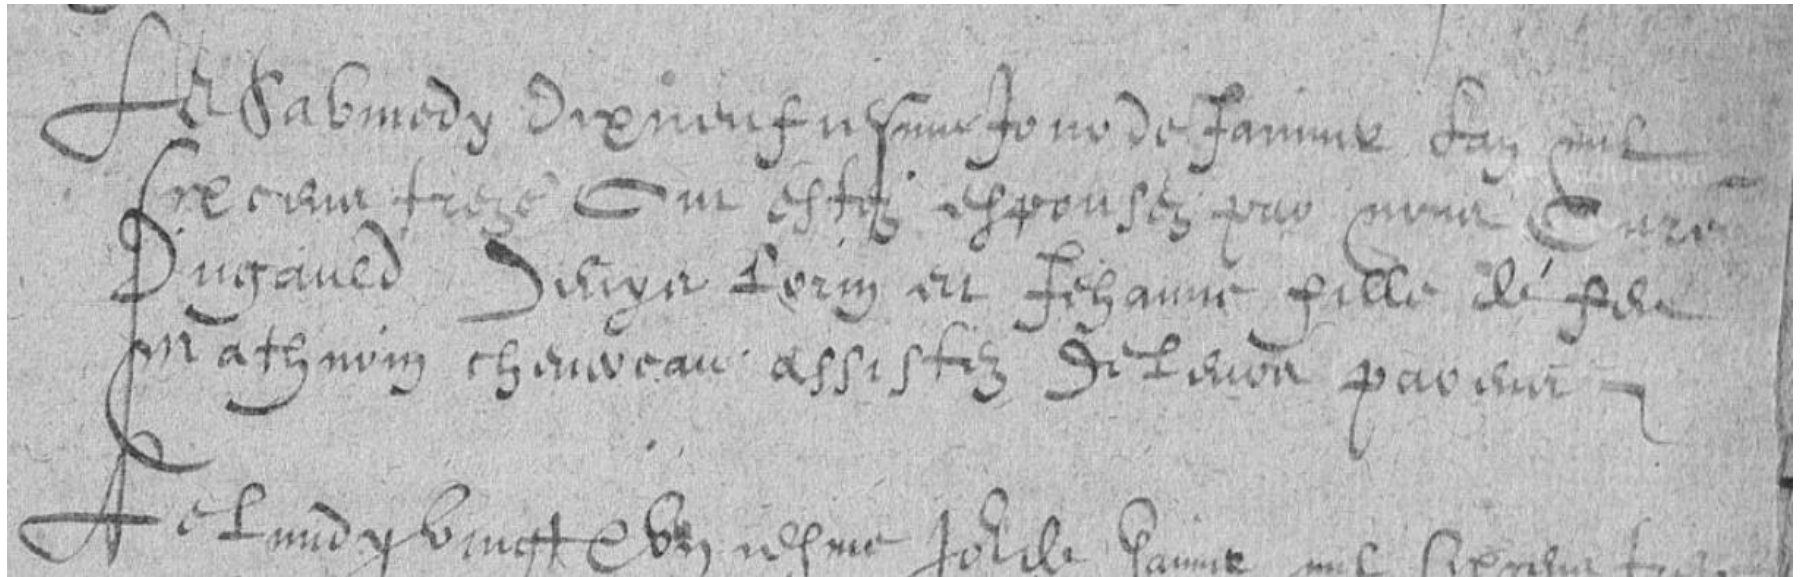 Le Sabmedy dixneufviesme Jour de Janvier l'an mil
six cens treze Ont estez espousez par nous Curé
Dugaued Lorin et Jehanne fille de feu
Mathurin cheureau assistez De Leurs parens
Le Lundy vingt & un iesme Jour de Janvier mil six cens treze